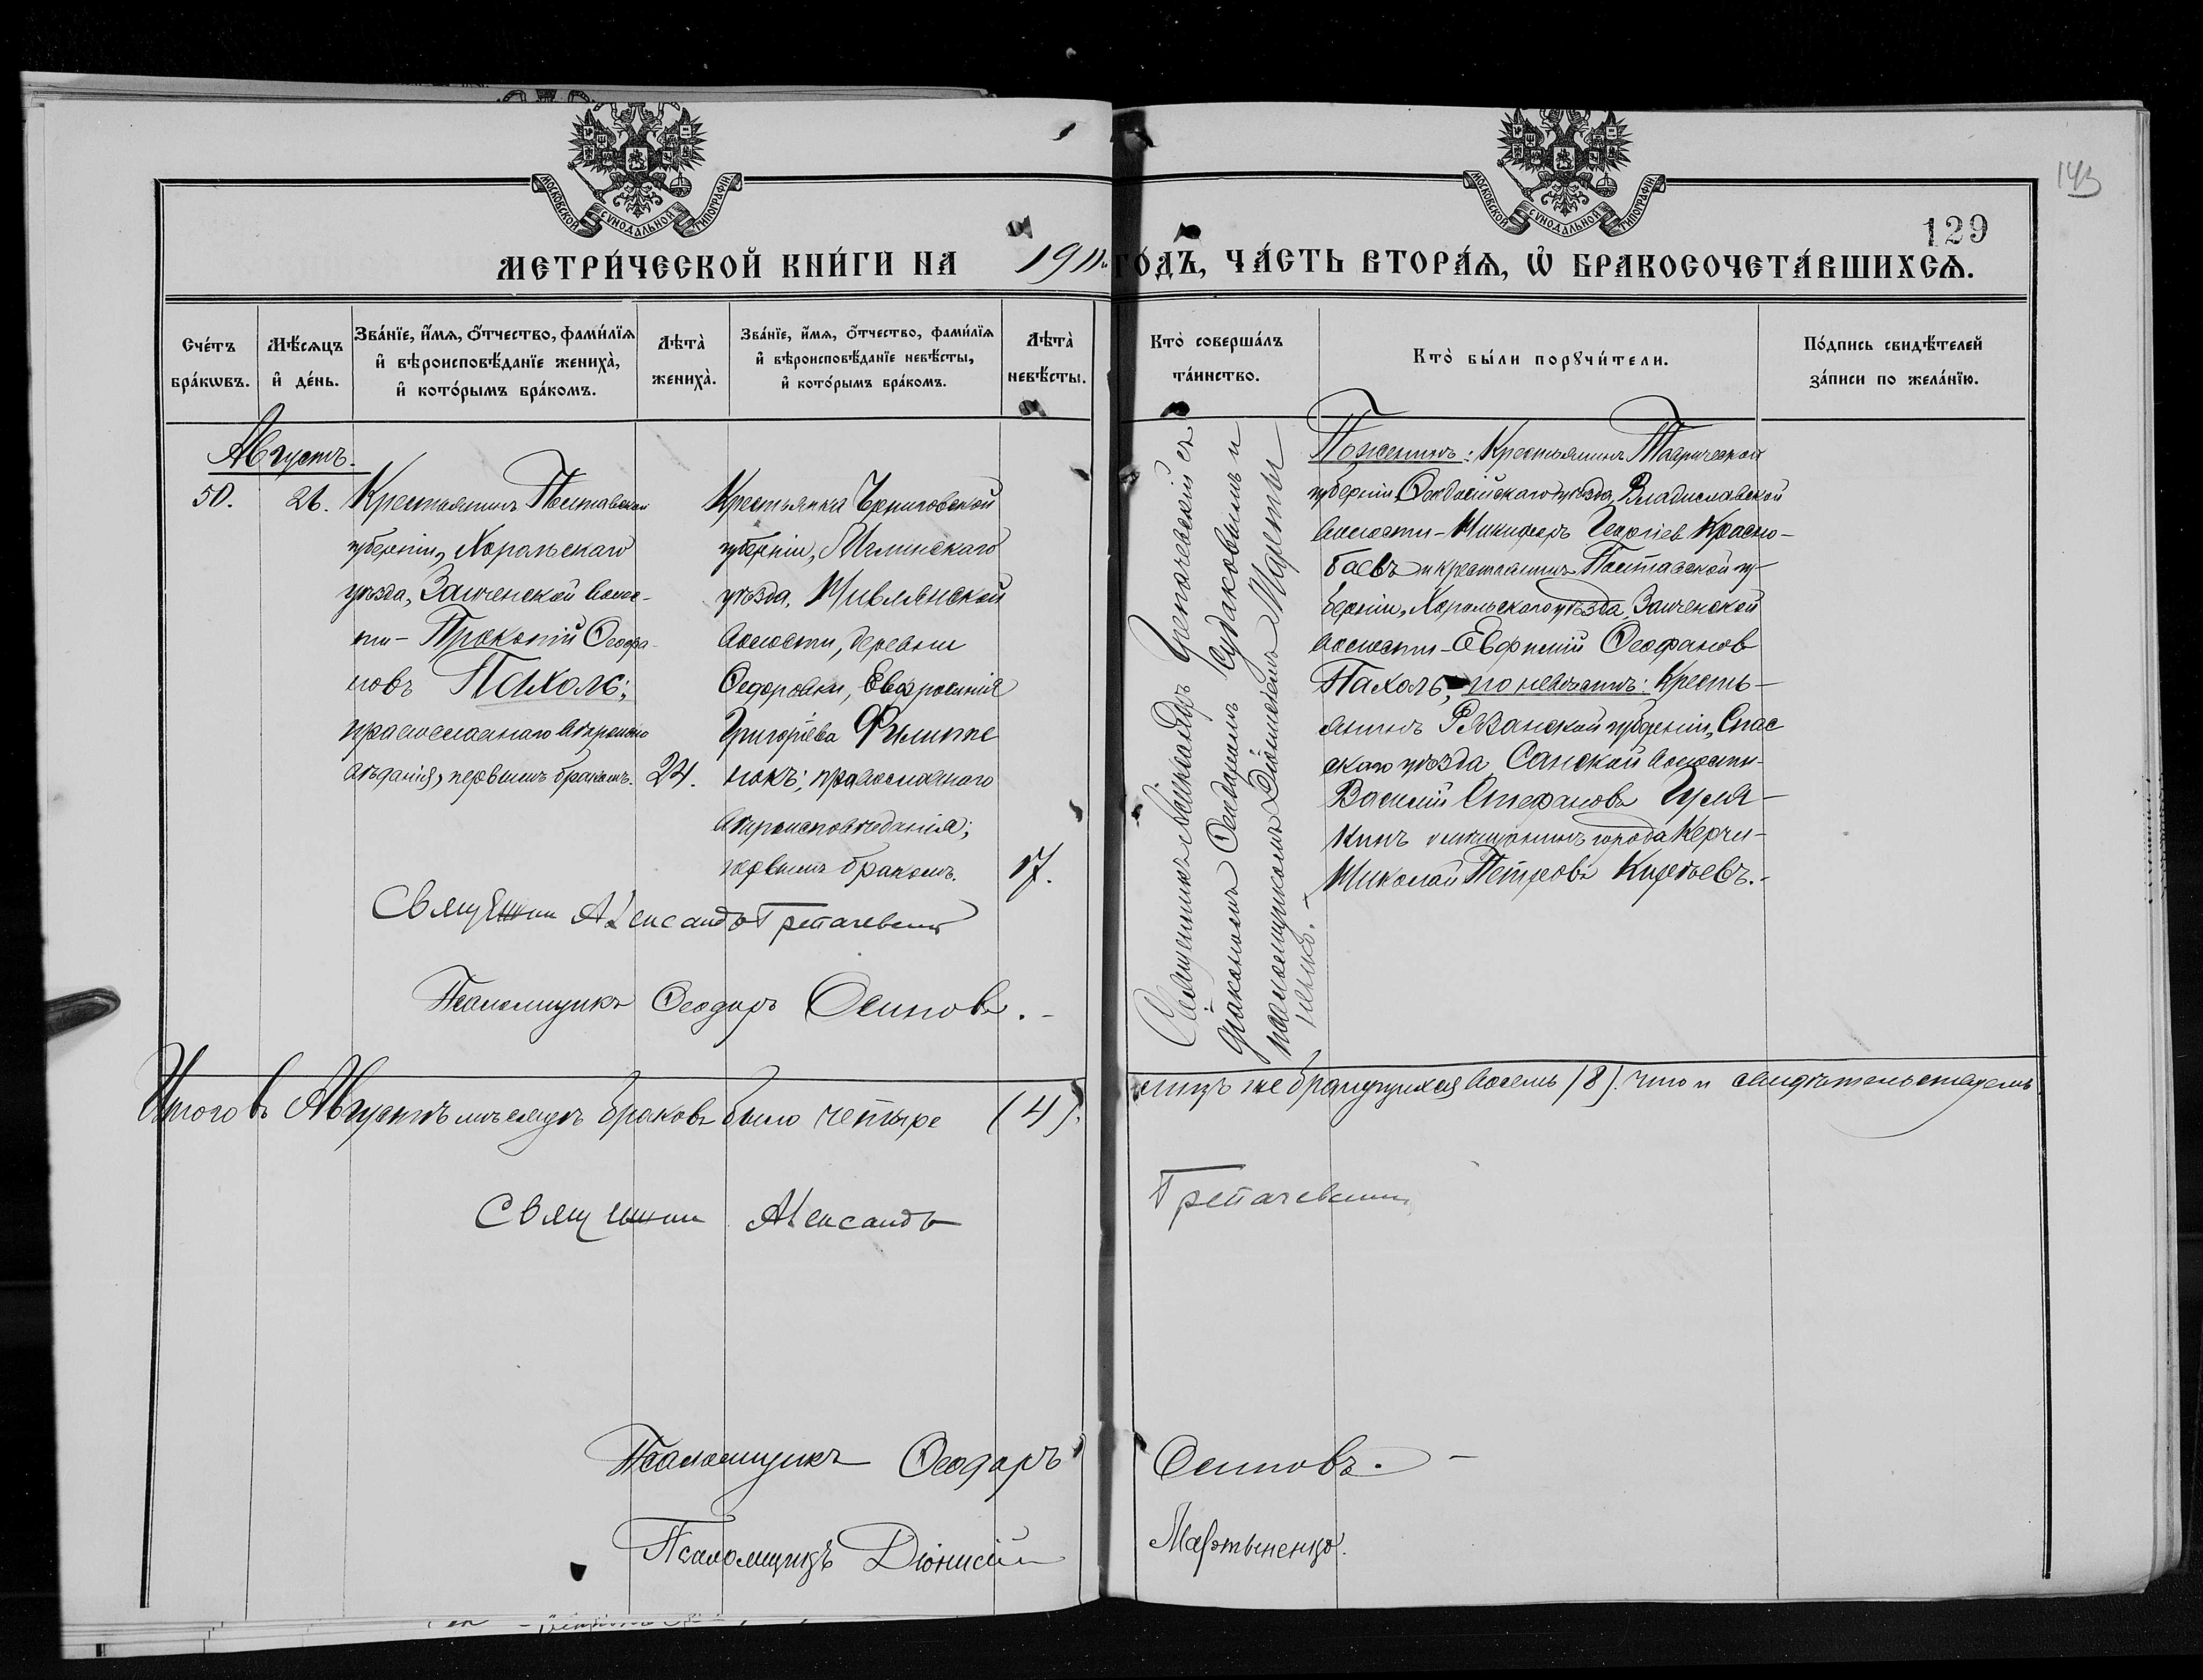 МОСКОВСКОЙ СѴНОДАЛЬНОЙ ТИПОГРАФІИ
МОСКОВСКОЙ СѴНОДАЛЬНОЙ ТИПОГРАФІИ
143
129
МЕТРИ́ЧЕСКОЙ КНИ́ГИ НА 1911 ГО́ДЪ, ЧА́СТЬ ВТОРА́Ѧ, Ѽ БРАКОСОЧЕТА́ВШИХСѦ.
Сче́тъ бра́кѡвъ.
Мѣ́сяцъ и де́нь.
Зва́нїе, и́мѧ, о́тчество, фами́лїѧ
и вѣроисповѣ́данїе жениха̀,
и кото́рымъ бра́комъ.
Лѣта̀ жениха̀.
Зва́нїе, и́мѧ, о́тчество, фами́лїѧ
и вѣроисповѣ́данїе невѣ́сты,
и кото́рымъ бра́комъ.
Лѣта̀ невѣ́сты.
Кто̀ соверша́лъ та́инство.
Кто̀ бы́ли порꙋчи́тели.
По́дпись свидѣ́телей
за́писи по жела́нїю.
Августъ.
50.
26.
Крестьянинъ Полтавской
губерніи, Хорольскаго
уѣзда, Заиченской волос-
ти - Прокопій Ѳеофа-
новъ Пахолъ;
православнаго вѣроиспо
вѣданія, первымъ бракомъ.
24.
Крестьянка Черниговской
губерніи, Мглинскаго
уѣзда, Нивлянской
волости, деревни
Ѳедоровки, Евфросинія
Григоріева Филиппе
нокъ; православнаго
вѣроисповѣданія;
первымъ бракомъ.
17.
Священникъ Александръ Грепачевскій съ
діакономъ Ѳеодоромъ Судаковымъ и
псаломщикомъ Діонисіемъ Марты
ненко.-
По женихѣ: Крестьянинъ Таврической
губерніи, Ѳеодосійскаго уѣзда, Владиславской
волости - Никифоръ Георгіев Красно-
баевъ и крестьянинъ Полтавской гу-
берніи, Хорольскаго уѣзда, Заиченской
волости - Евфимій Ѳеофановъ
Пахолъ, по невѣстѣ: Кресть-
янинъ Рязанской губерніи, Спас
скаго уѣзда Санской волости-
Василій Стефановъ Гуля-
кинъ и мѣщанинъ города Керчи-
Николай Петровъ Кирѣевъ.-
Священникъ Александръ Грепачевскій
Псаломщикъ Ѳеодоръ Осиповъ.-
Итого въ Августѣ мѣсяцѣ браковъ было четыре (4). лицъ же брачущихся восемь (8). что и свидѣтельствуемъ
Священникъ Александръ Грепачевскій
Псаломщикъ Ѳеодоръ Осиповъ.-
Псаломщикъ Діонисій Мартыненко.